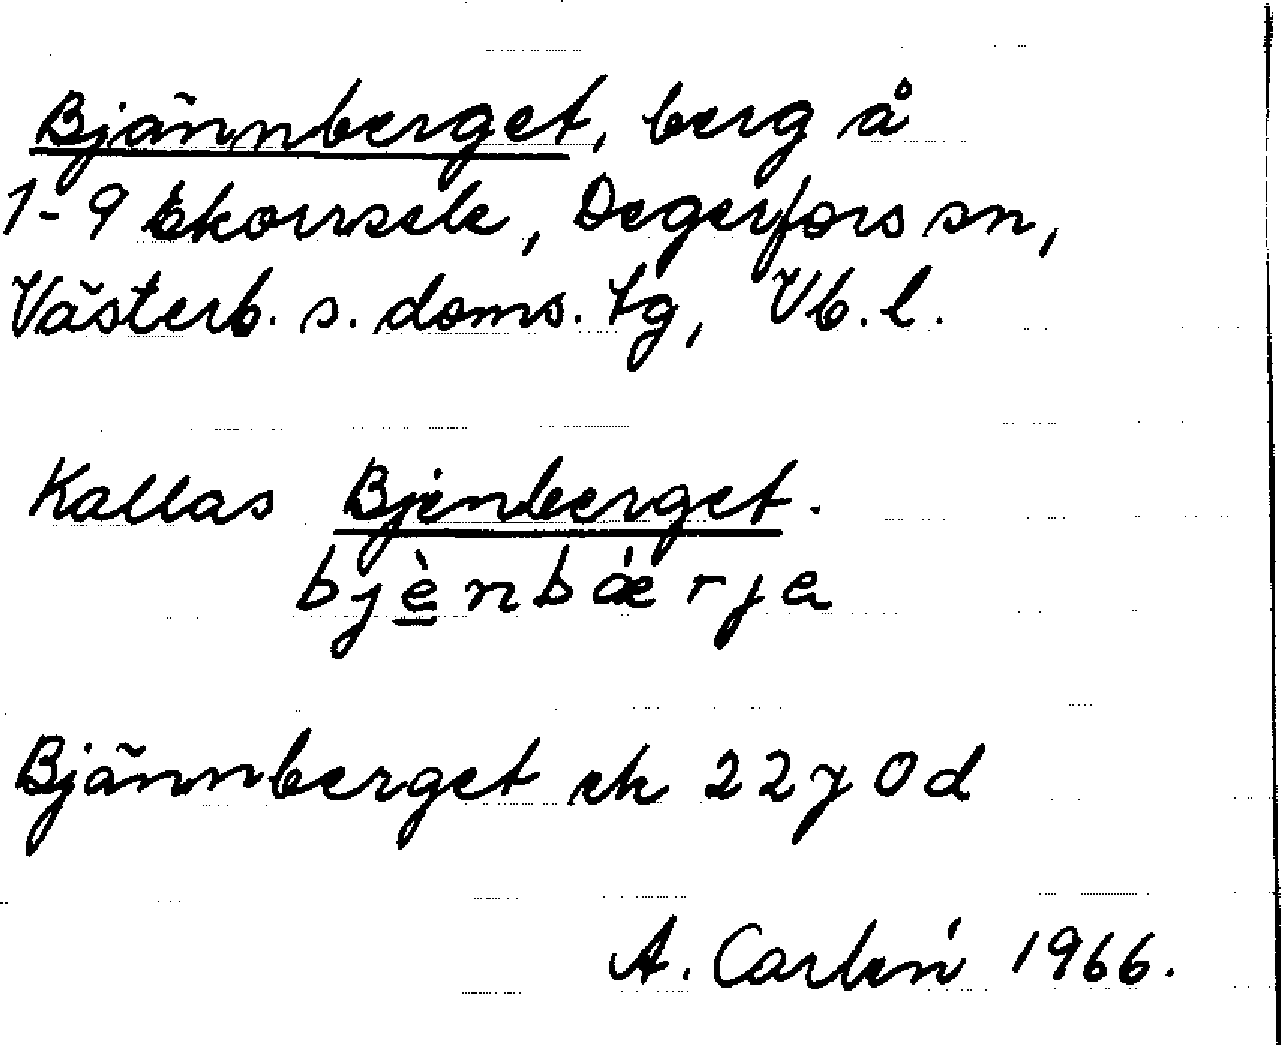 Bjännberget, berg å
1-9 Ekorrsele, Degerfors sn,
Västerb. s. doms. tg, Vb. l.
Kallas Bjenberget.
bjènbáerja
Bjännberget ek 22 J 0 d
A. Carlén 1966.